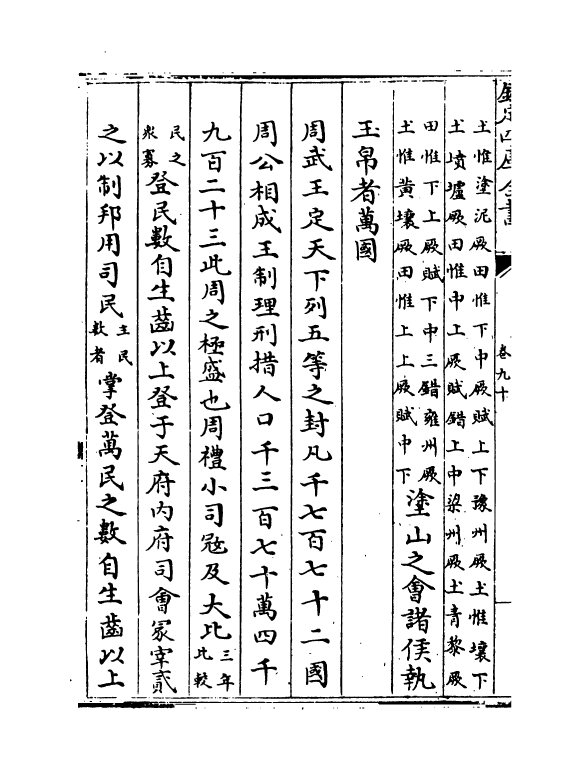 欽定四庫全書
卷九十
土惟塗泥厥田惟下中厥賦上下豫州厥土惟壤下
土墳壚厥田惟中上厥賦錯上中梁州厥土青黎厥
田惟下上厥賦下中三錯雍州厥
土惟黃壤厥田惟上上厥賦中下
塗山之會諸侯執
玉帛者萬國
周武王定天下列五等之封凡千七百七十二國
周公相成王制理刑措人口千三百七十萬四千
九百二十三此周之極盛也周禮小司寇及大比三年比較
民之衆寡登民數自生齒以上登于天府內府司會冢宰貳
之以制邦用司民主民數者掌登萬民之數自生齒以上